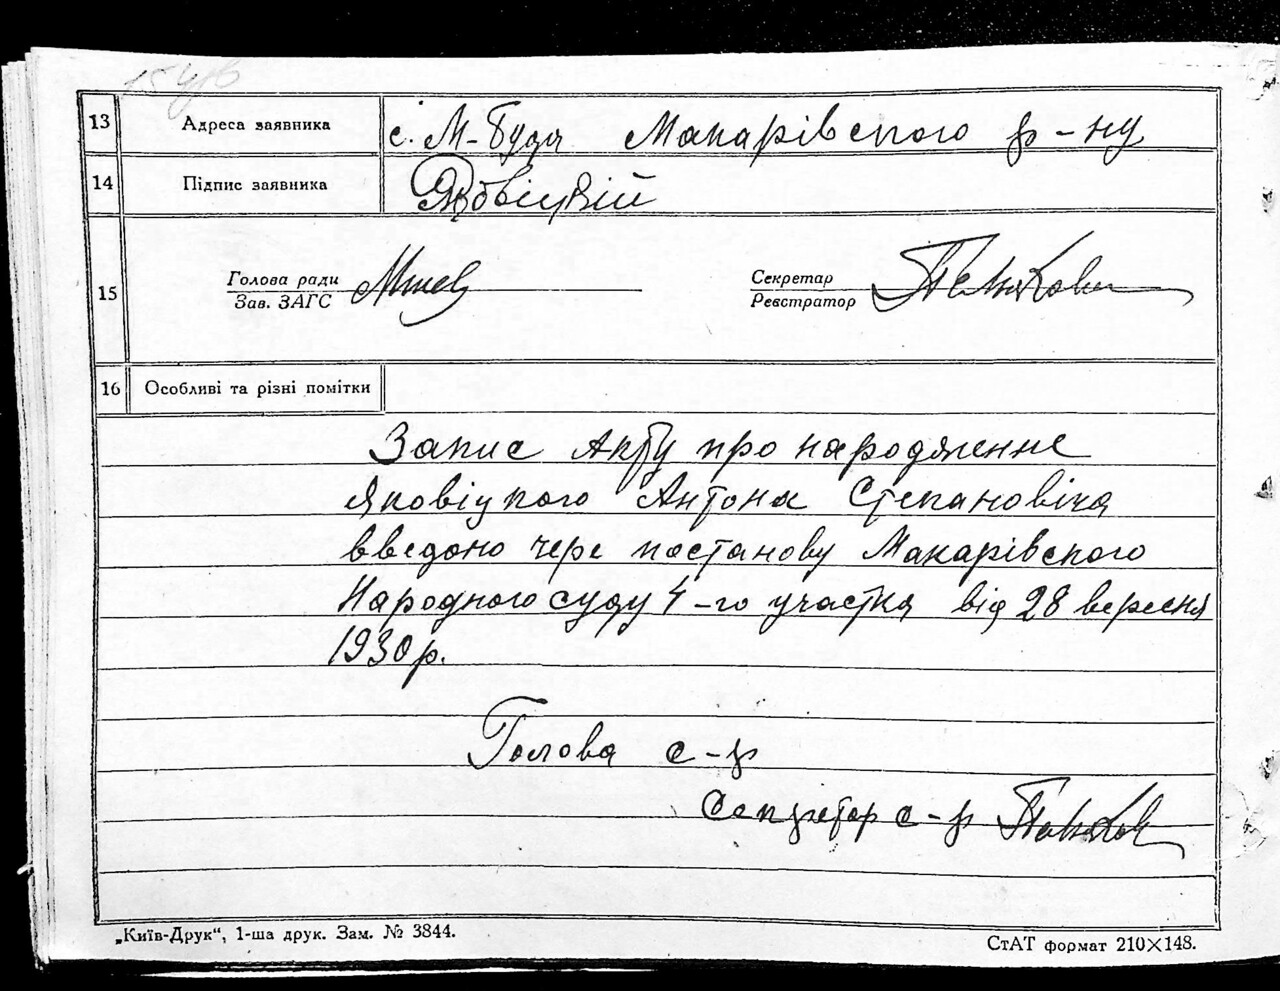 13 Адреса заявника с. М-Буда Макарівского р-ну
14 Підпис заявника
15 Голова ради
Зав. ЗАГС
Секретар
Реєстратор
16 Особливі та різні помітки
Запис Акту про народження
Яковіцкого Антона Степановіча
введоно чере постанову Макарівского
Народного суду 4-го участка від 28 вересня
1930 р.
Голова с-р
Секретор с-р
„Київ-Друк“, 1-ша друк. Зам. № 3844.
СтАТ формат 210×148.